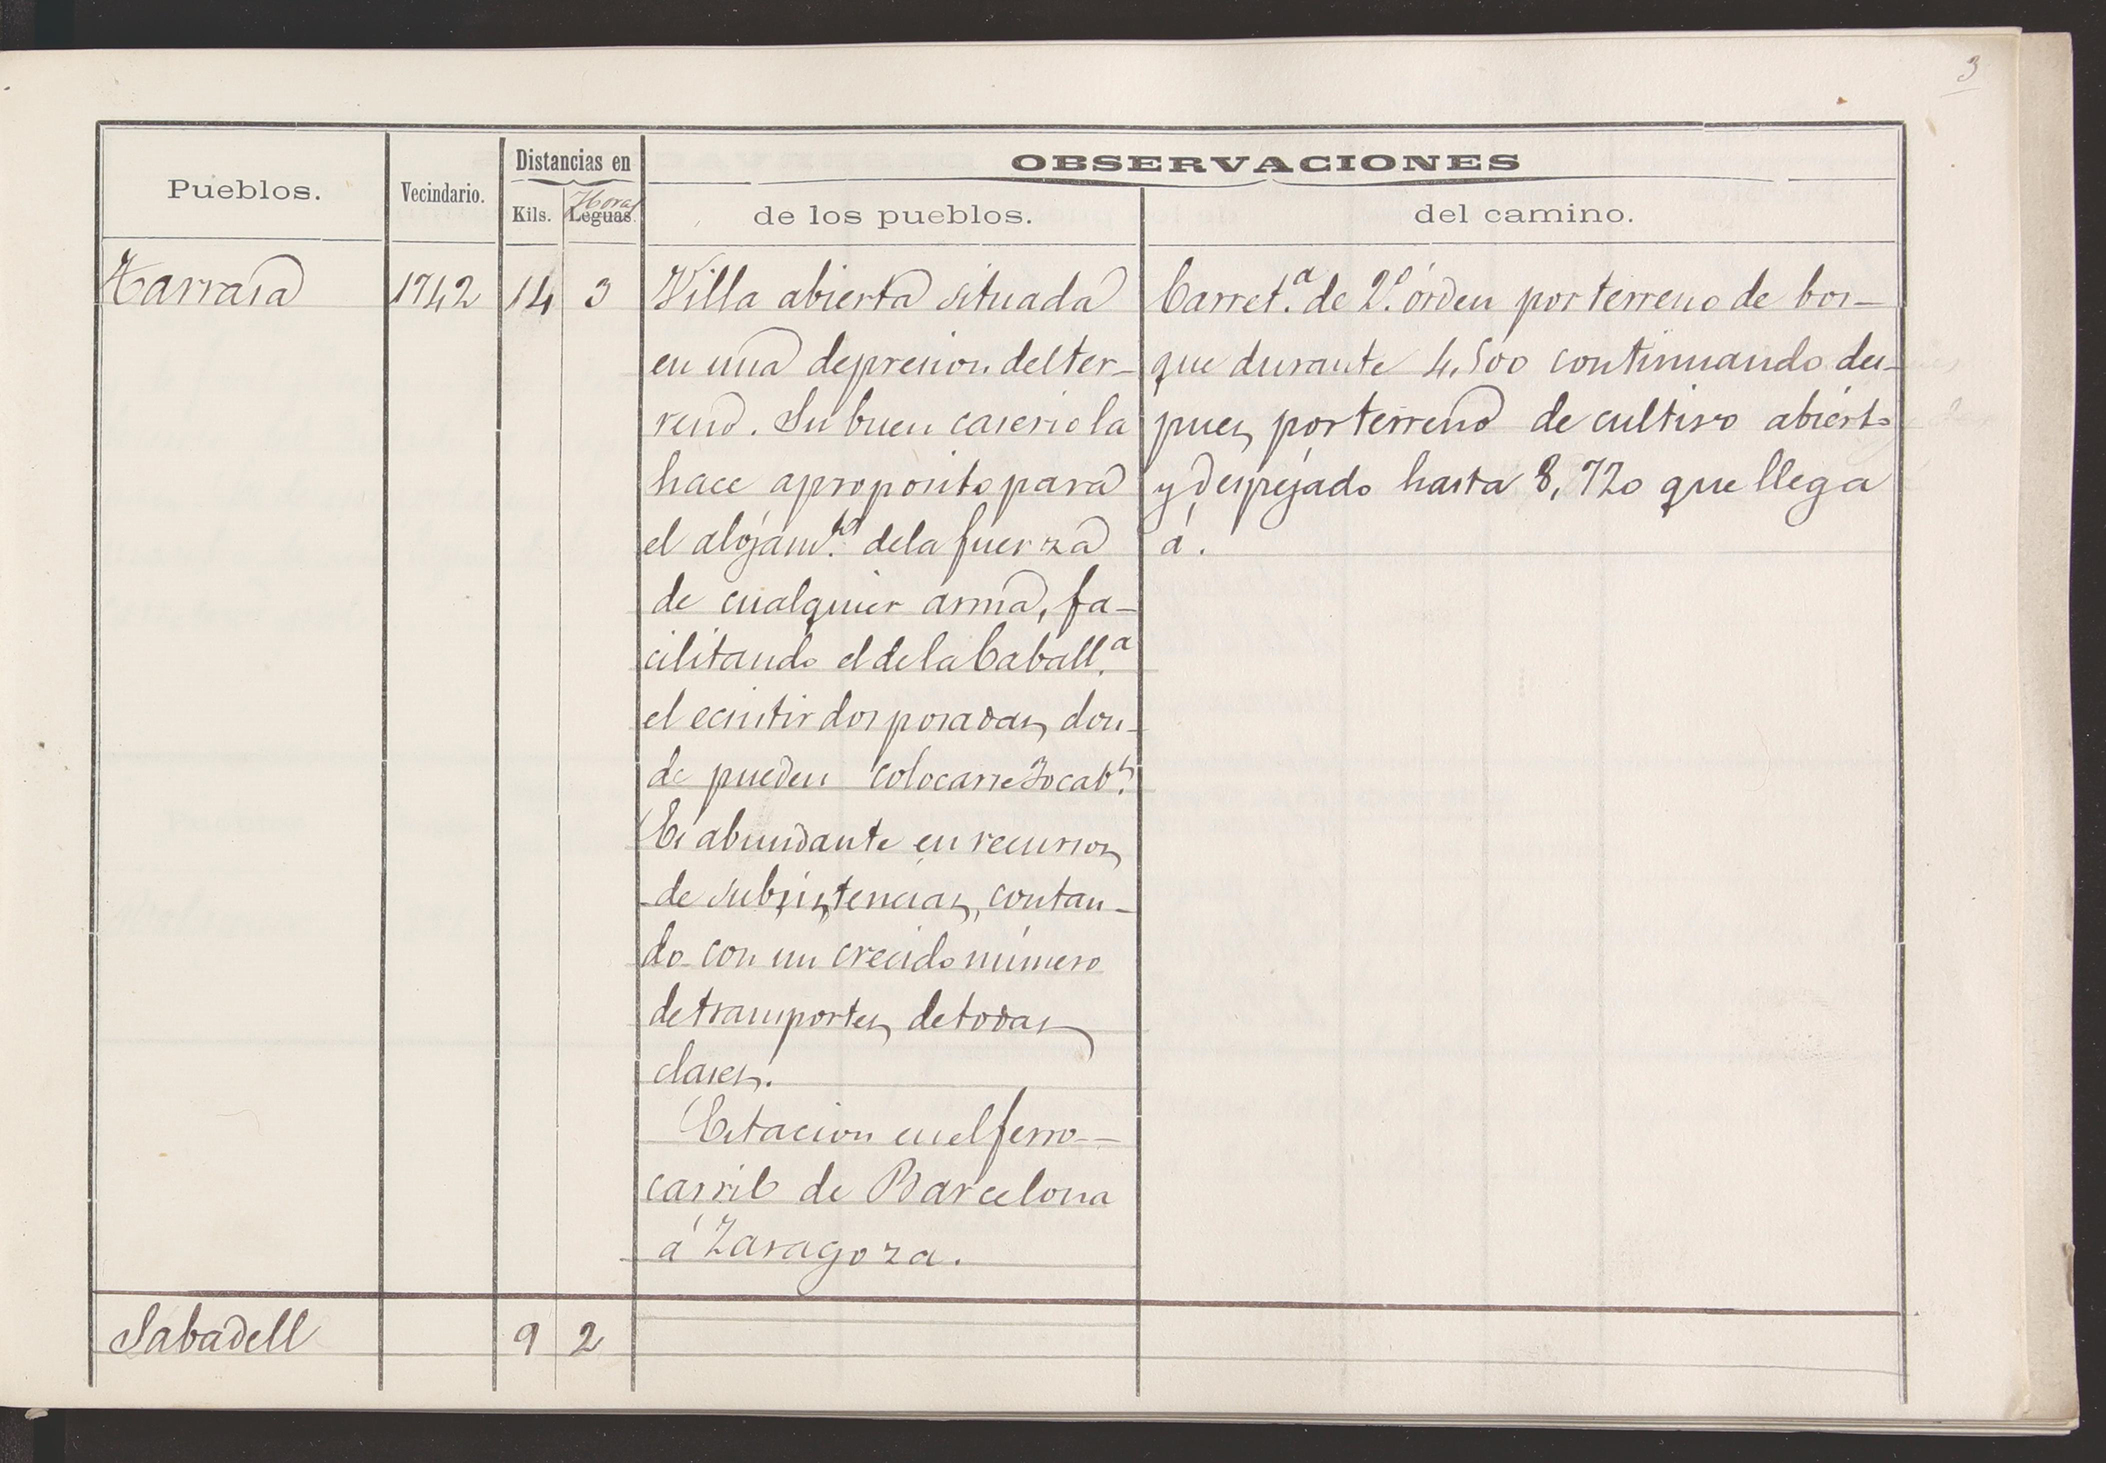 3
Pueblos.
Vecindario.
Distancias en
Kils.
Horas
Leguas.
OBSERVACIONES
de los pueblos.
del camino.
Tarrasa
1742
14
3
Villa abierta situada
en una depresion del ter-
reno. Su buen caserio la
hace aproposito para
el alojam.to de la fuerza
de cualquier arma, fa-
cilitando el de la Caball.a
el ecsistir dos posadas, don-
de pueden colocarse 70 cab.s
Es abundante en recursos
de subsistencias, contan-
do con un crecido número
de transportes de todas
clases.
Estacion en el ferro-
carril de Barcelona
á Zaragoza.
Carret.a de 2.º órden por terreno de bos-
que durante 4,500 continuando des-
pues por terreno de cultivo abierto
y despejado hasta 8,720 que llega
á.
Sabadell
9
2